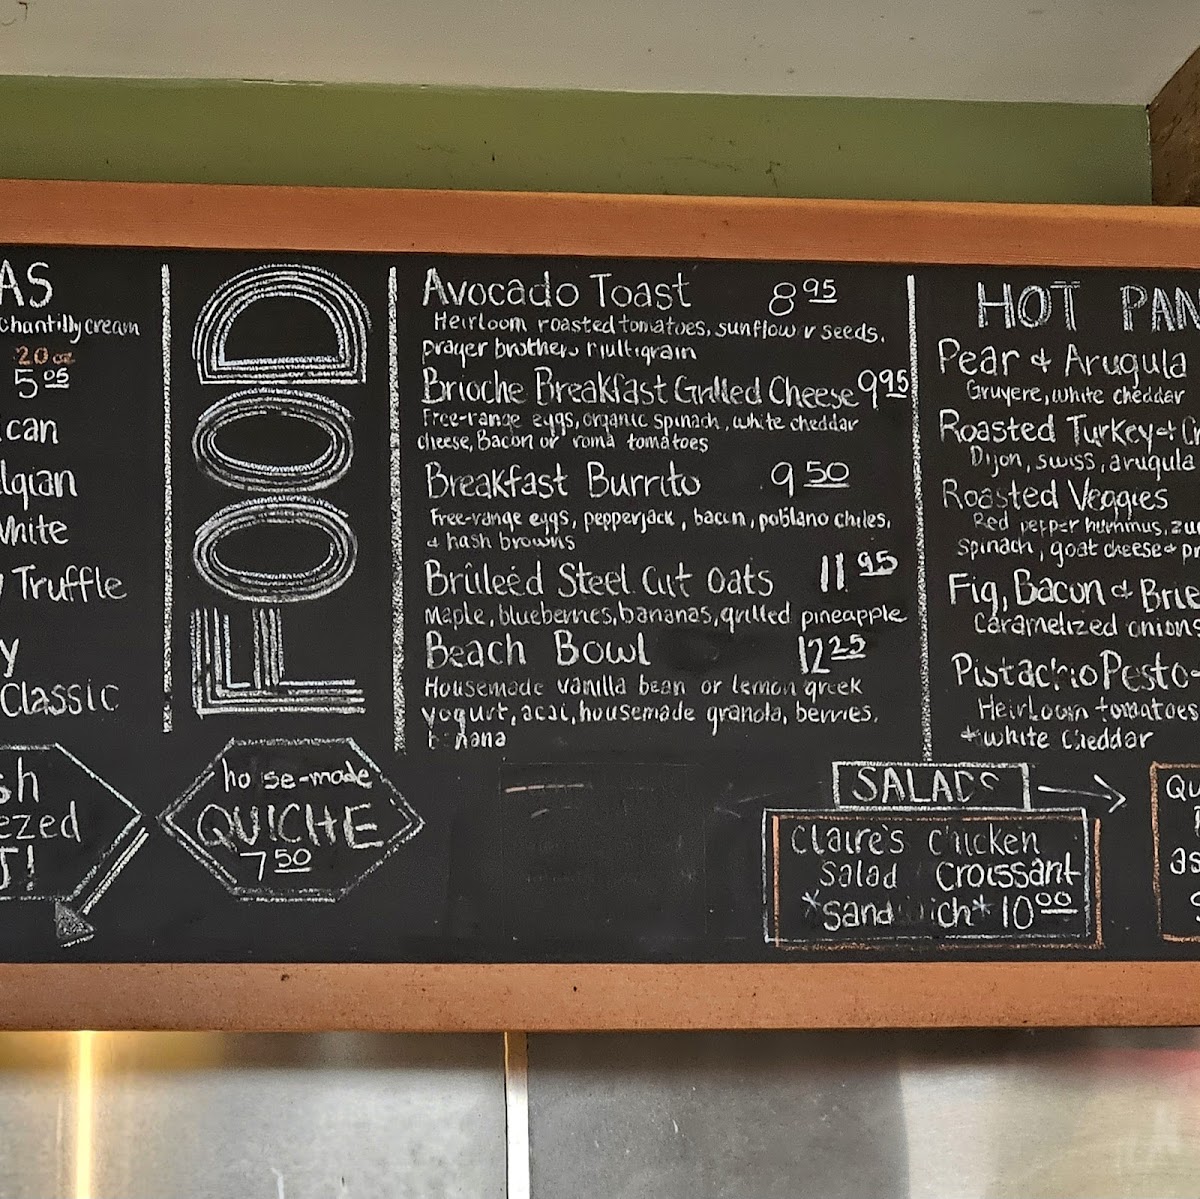 AS
Chantilly cream
20 oz
5 05
can
lgian
White
Truffle
y
Classic
sh
ezed
J!
FOOD
house-made
QUICHE
7 50
Avocado Toast 8 95
Heirloom roasted tomatoes, sunflower seeds,
prager brothers multigrain
Brioche Breakfast Grilled Cheese 9 95
Free-range eggs, organic spinach, white cheddar
cheese, Bacon or roma tomatoes
Breakfast Burrito 9 50
Free-range eggs, pepperjack, bacon, poblano chiles,
& hash browns
Brûleéd Steel Cut Oats 11 95
Maple, blueberries, bananas, grilled pineapple
Beach Bowl 12 25
Housemade vanilla bean or lemon greek
yogurt, acai, housemade granola, berries,
banana
HOT PAN
Pear & Arugula
Gruyere, white cheddar
Roasted Turkey + Cr
Dijon, swiss, arugula
Roasted Veggies
Red pepper hummus, zu
spinach, goat cheese + p
Fig, Bacon & Brie
Caramelized onions
Pistachio Pesto
Heirloom tomatoes
+ white cheddar
SALADS
Claire's Chicken
Salad Croissant
*sandwich* 10 00
QU
as